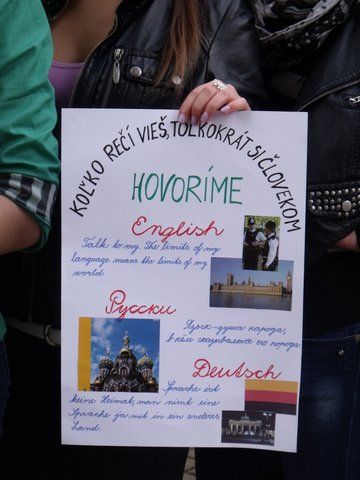 KOĽKO REČÍ VIEŠ, TOĽKOKRÁT SI ČLOVEKOM
HOVORÍME
English
Talk to my. The limits of my
language means the limits of my
world.
Русски
Язык-душа народа,
в нём сказывается его порода
Deutsch
Sprache ist
keine Heimat, man nimt eine
Sprache ja mit in ein anderes
Land.